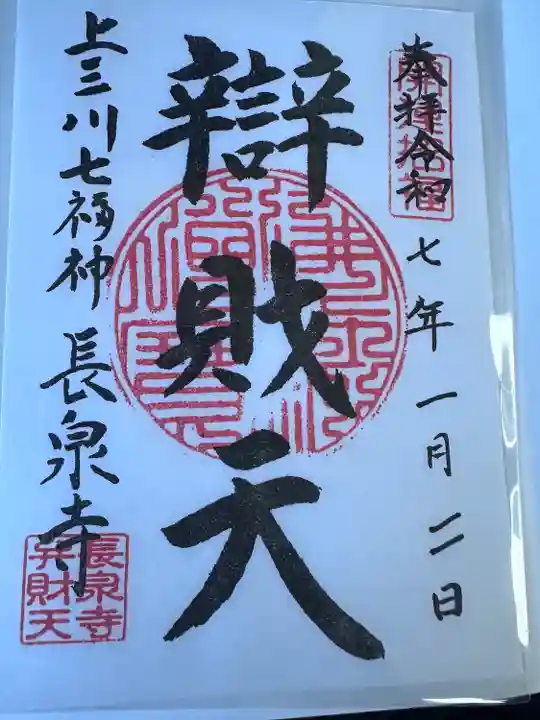 奉拝 令和七年一月二日
辯財天
上三川七福神 長泉寺
長泉寺
弁財天